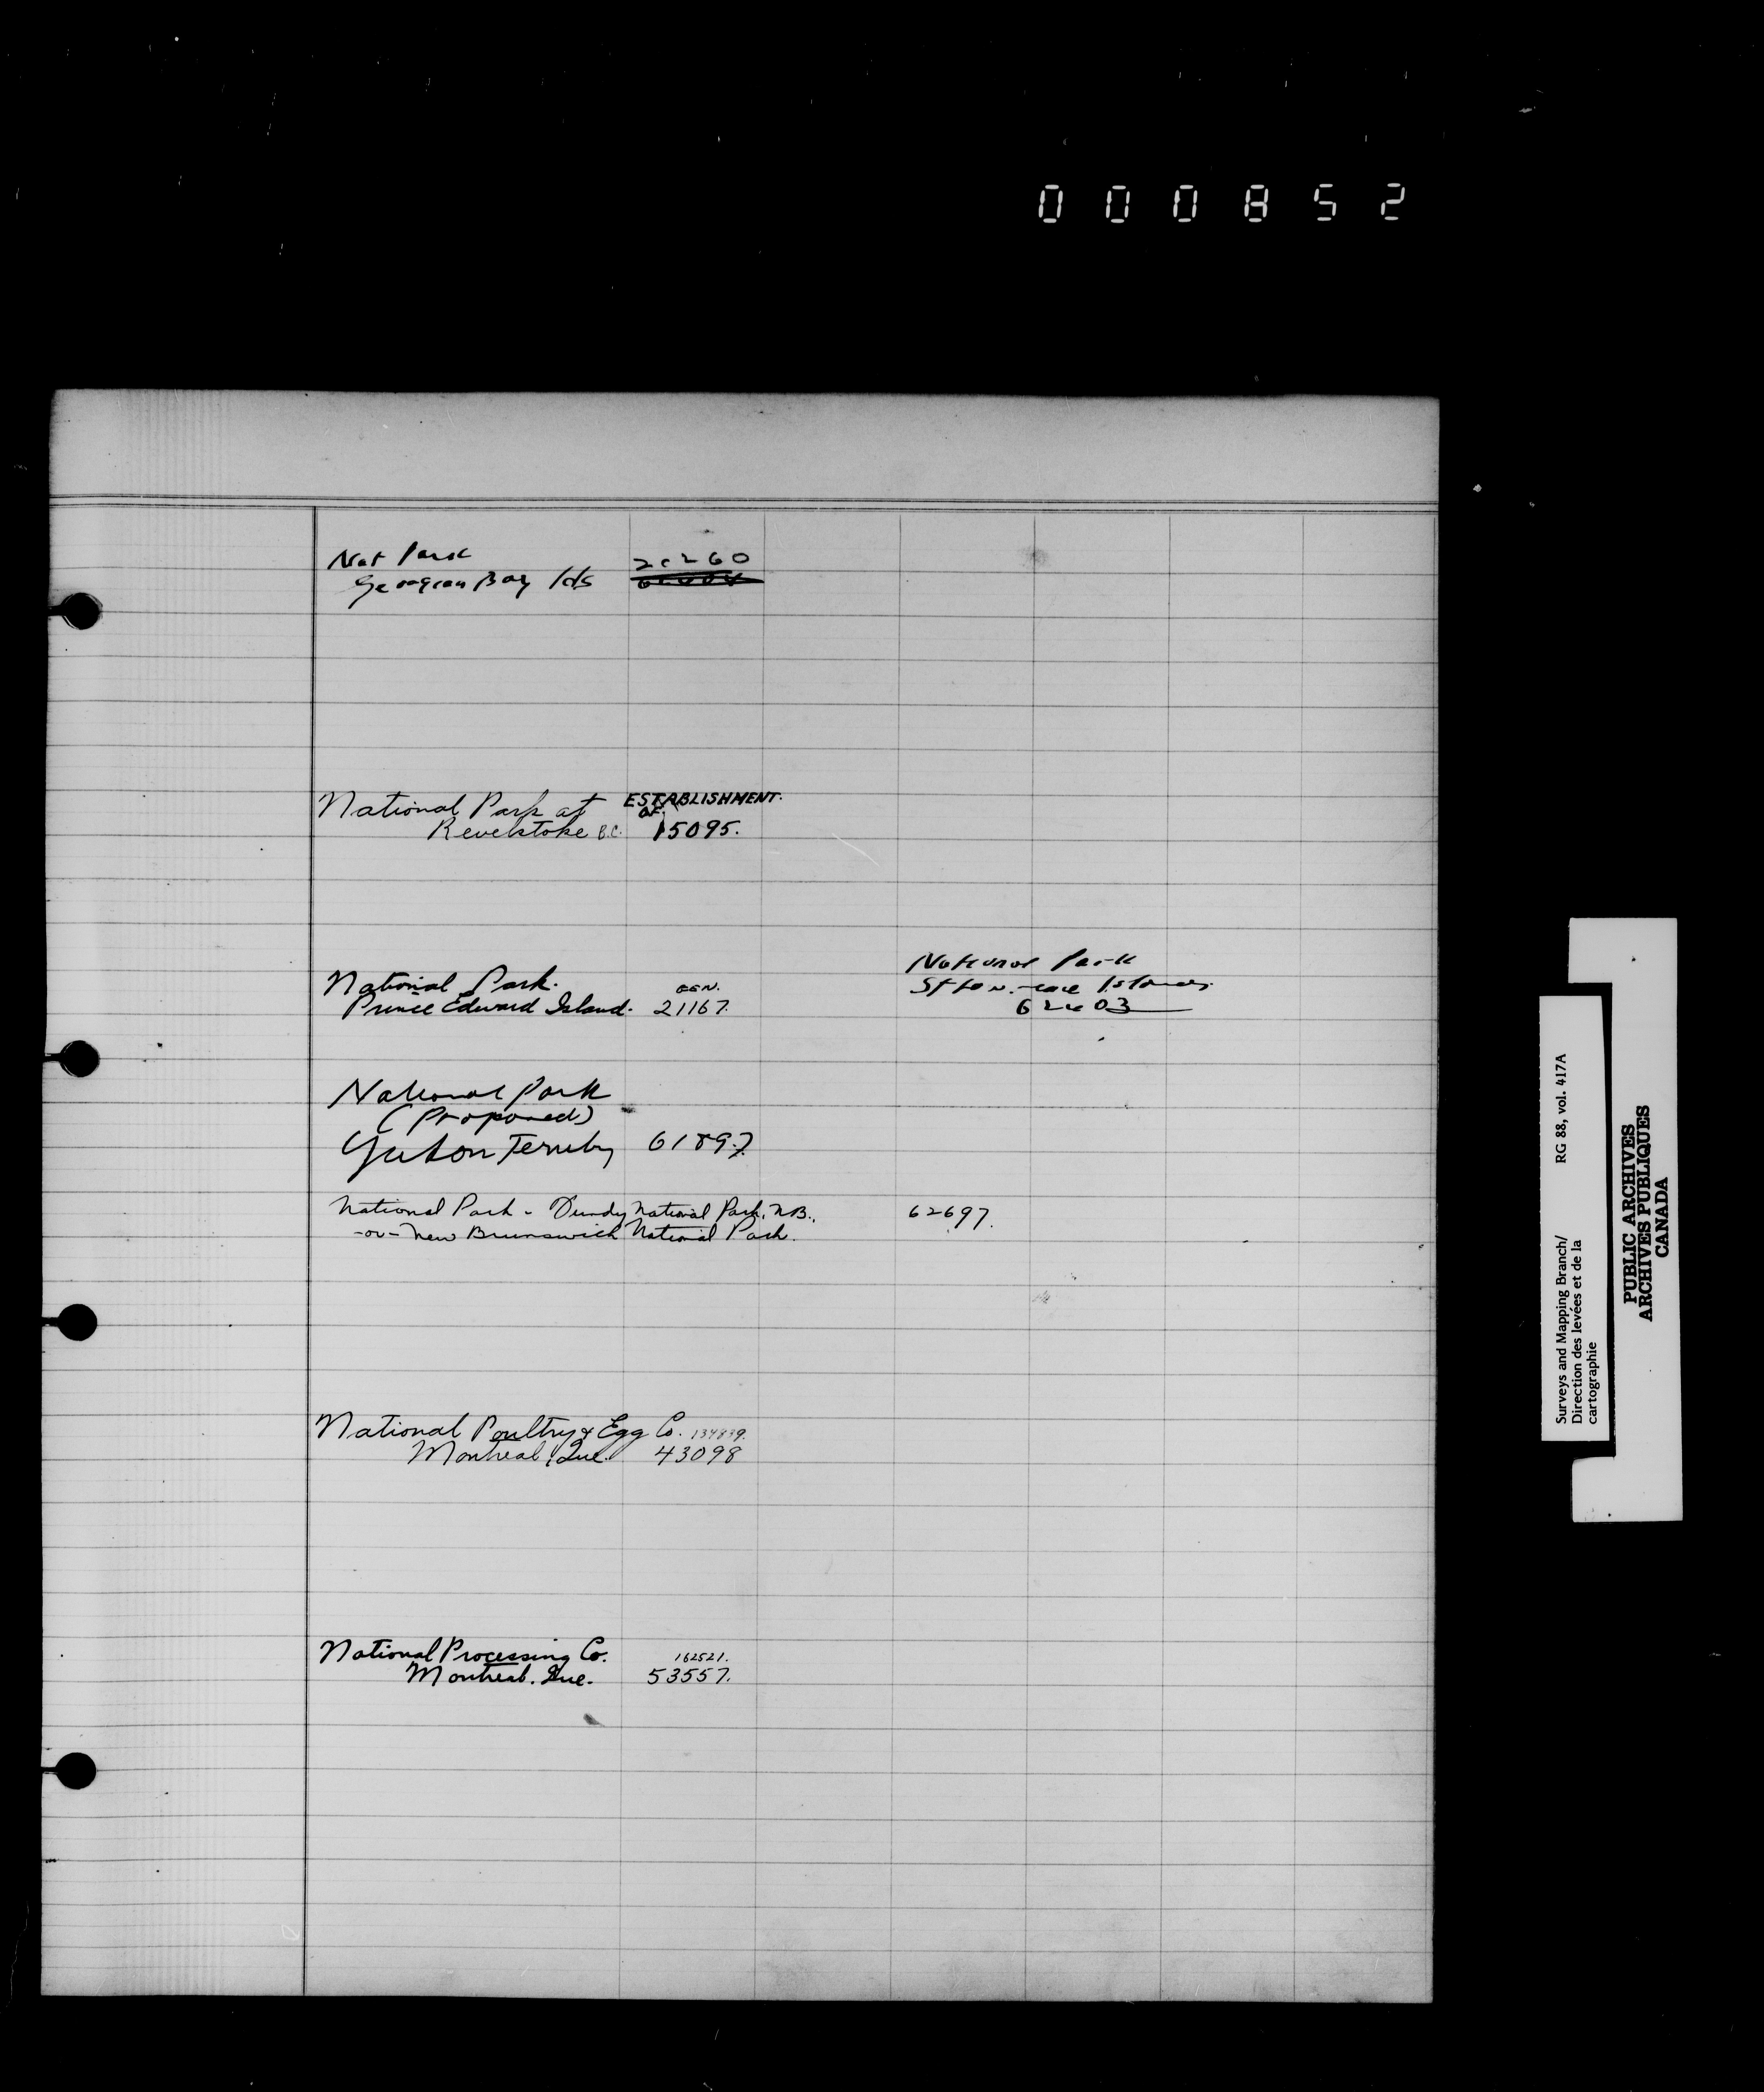 000852
Nat Park
Georgian Bay Ids 20260
National Park at ESTABLISHMENT OF.
Revelstoke B.C. 15095.
National Park. GEN.
Prince Edward Island. 21167.
National Park
St Lawrence Islands
National Park
(Proposed)
Yukon Territory 61897
National Park - Fundy National Park, N.B., 62697.
-or- New Brunswick National Park.
National Poultry & Egg Co. 134839.
Montreal, Que. 43098
National Processing Co. 162521.
Montreal. Que. 53557.
Surveys and Mapping Branch/ RG 88, vol. 417A
Direction des levées et de la
cartographie
PUBLIC ARCHIVES
ARCHIVES PUBLIQUES
CANADA